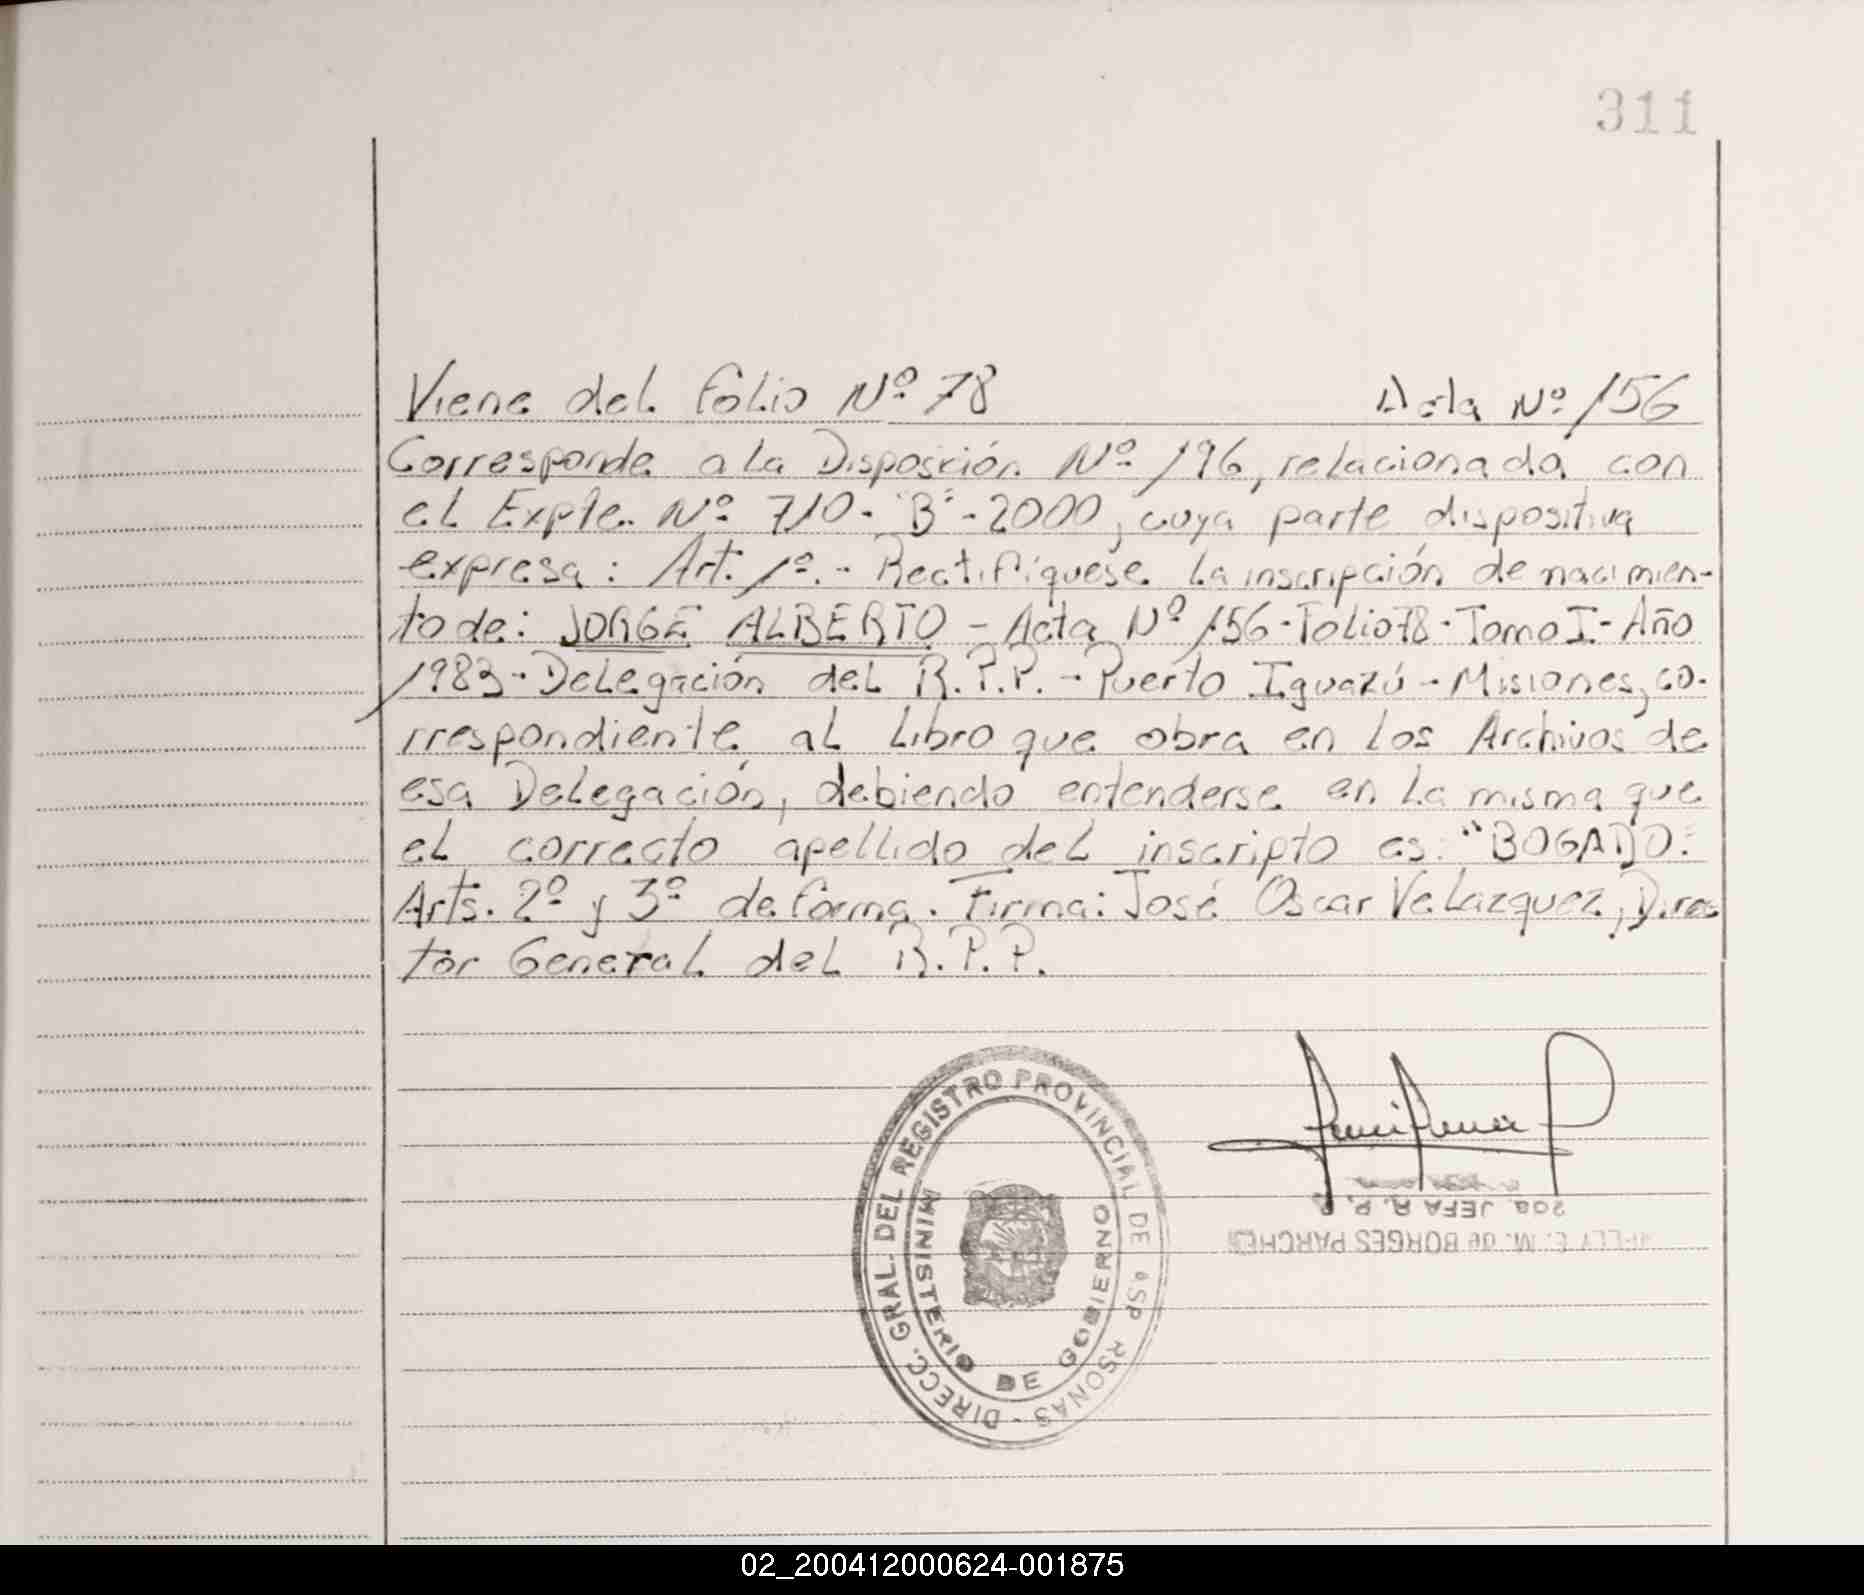 311
Viene del folio Nº 78 Acta Nº 156
Corresponde a la Disposición Nº 196, relacionada con
el Expte. Nº 710-"B"-2000, cuya parte dispositiva
expresa: Art. 1º.- Rectifíquese la inscripción de nacimien-
to de: JORGE ALBERTO - Acta Nº 156-Folio 78-Tomo I-Año
1983-Delegación del R.P.P. - Puerto Iguazú - Misiones, co-
rrespondiente al Libro que obra en los Archivos de
esa Delegación, debiendo entenderse en la misma que
el correcto apellido del inscripto es: "BOGADO".
Arts. 2º y 3º de forma. Firma: José Oscar Velazquez, Direc
tor General del R.P.P.
DIRECC. GRAL. DEL REGISTRO PROVINCIAL DE RSONAS
MINISTERIO DE GOBIERNO
2da. JEFA R. P. P.
E. M. de BORGES PARCHE
02_200412000624-001875